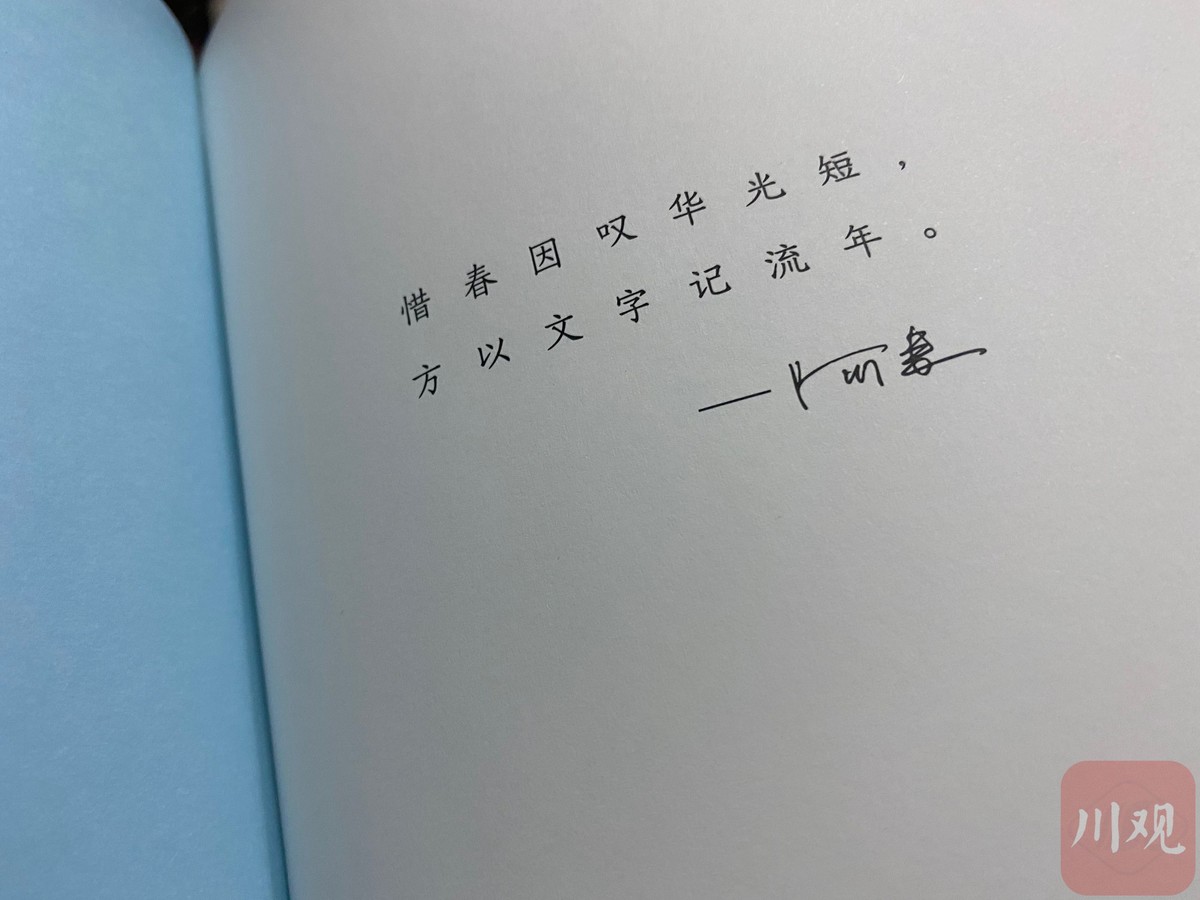 惜春因叹华光短，
方以文字记流年。
川观